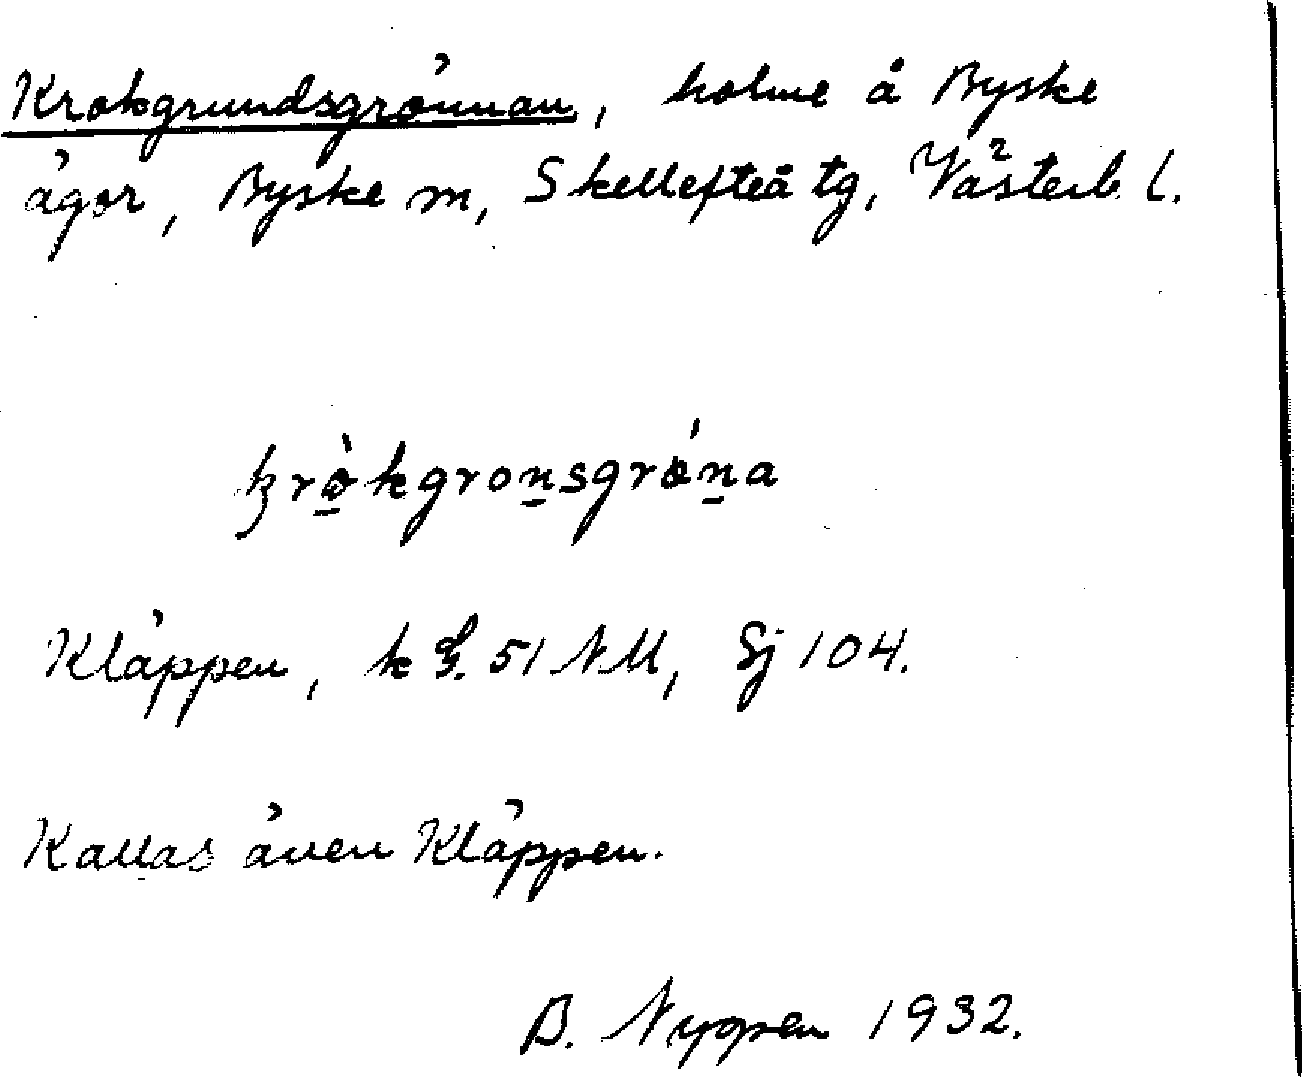 Krokgrundsgrönnan, holme å Byske
ägor, Byske sn, Skellefteå tg, Västerb. l.
kròkgronsgrǿna
Kläppen, k 51 NU, Sj 104.
Kallas även Kläppen.
B. 1932.